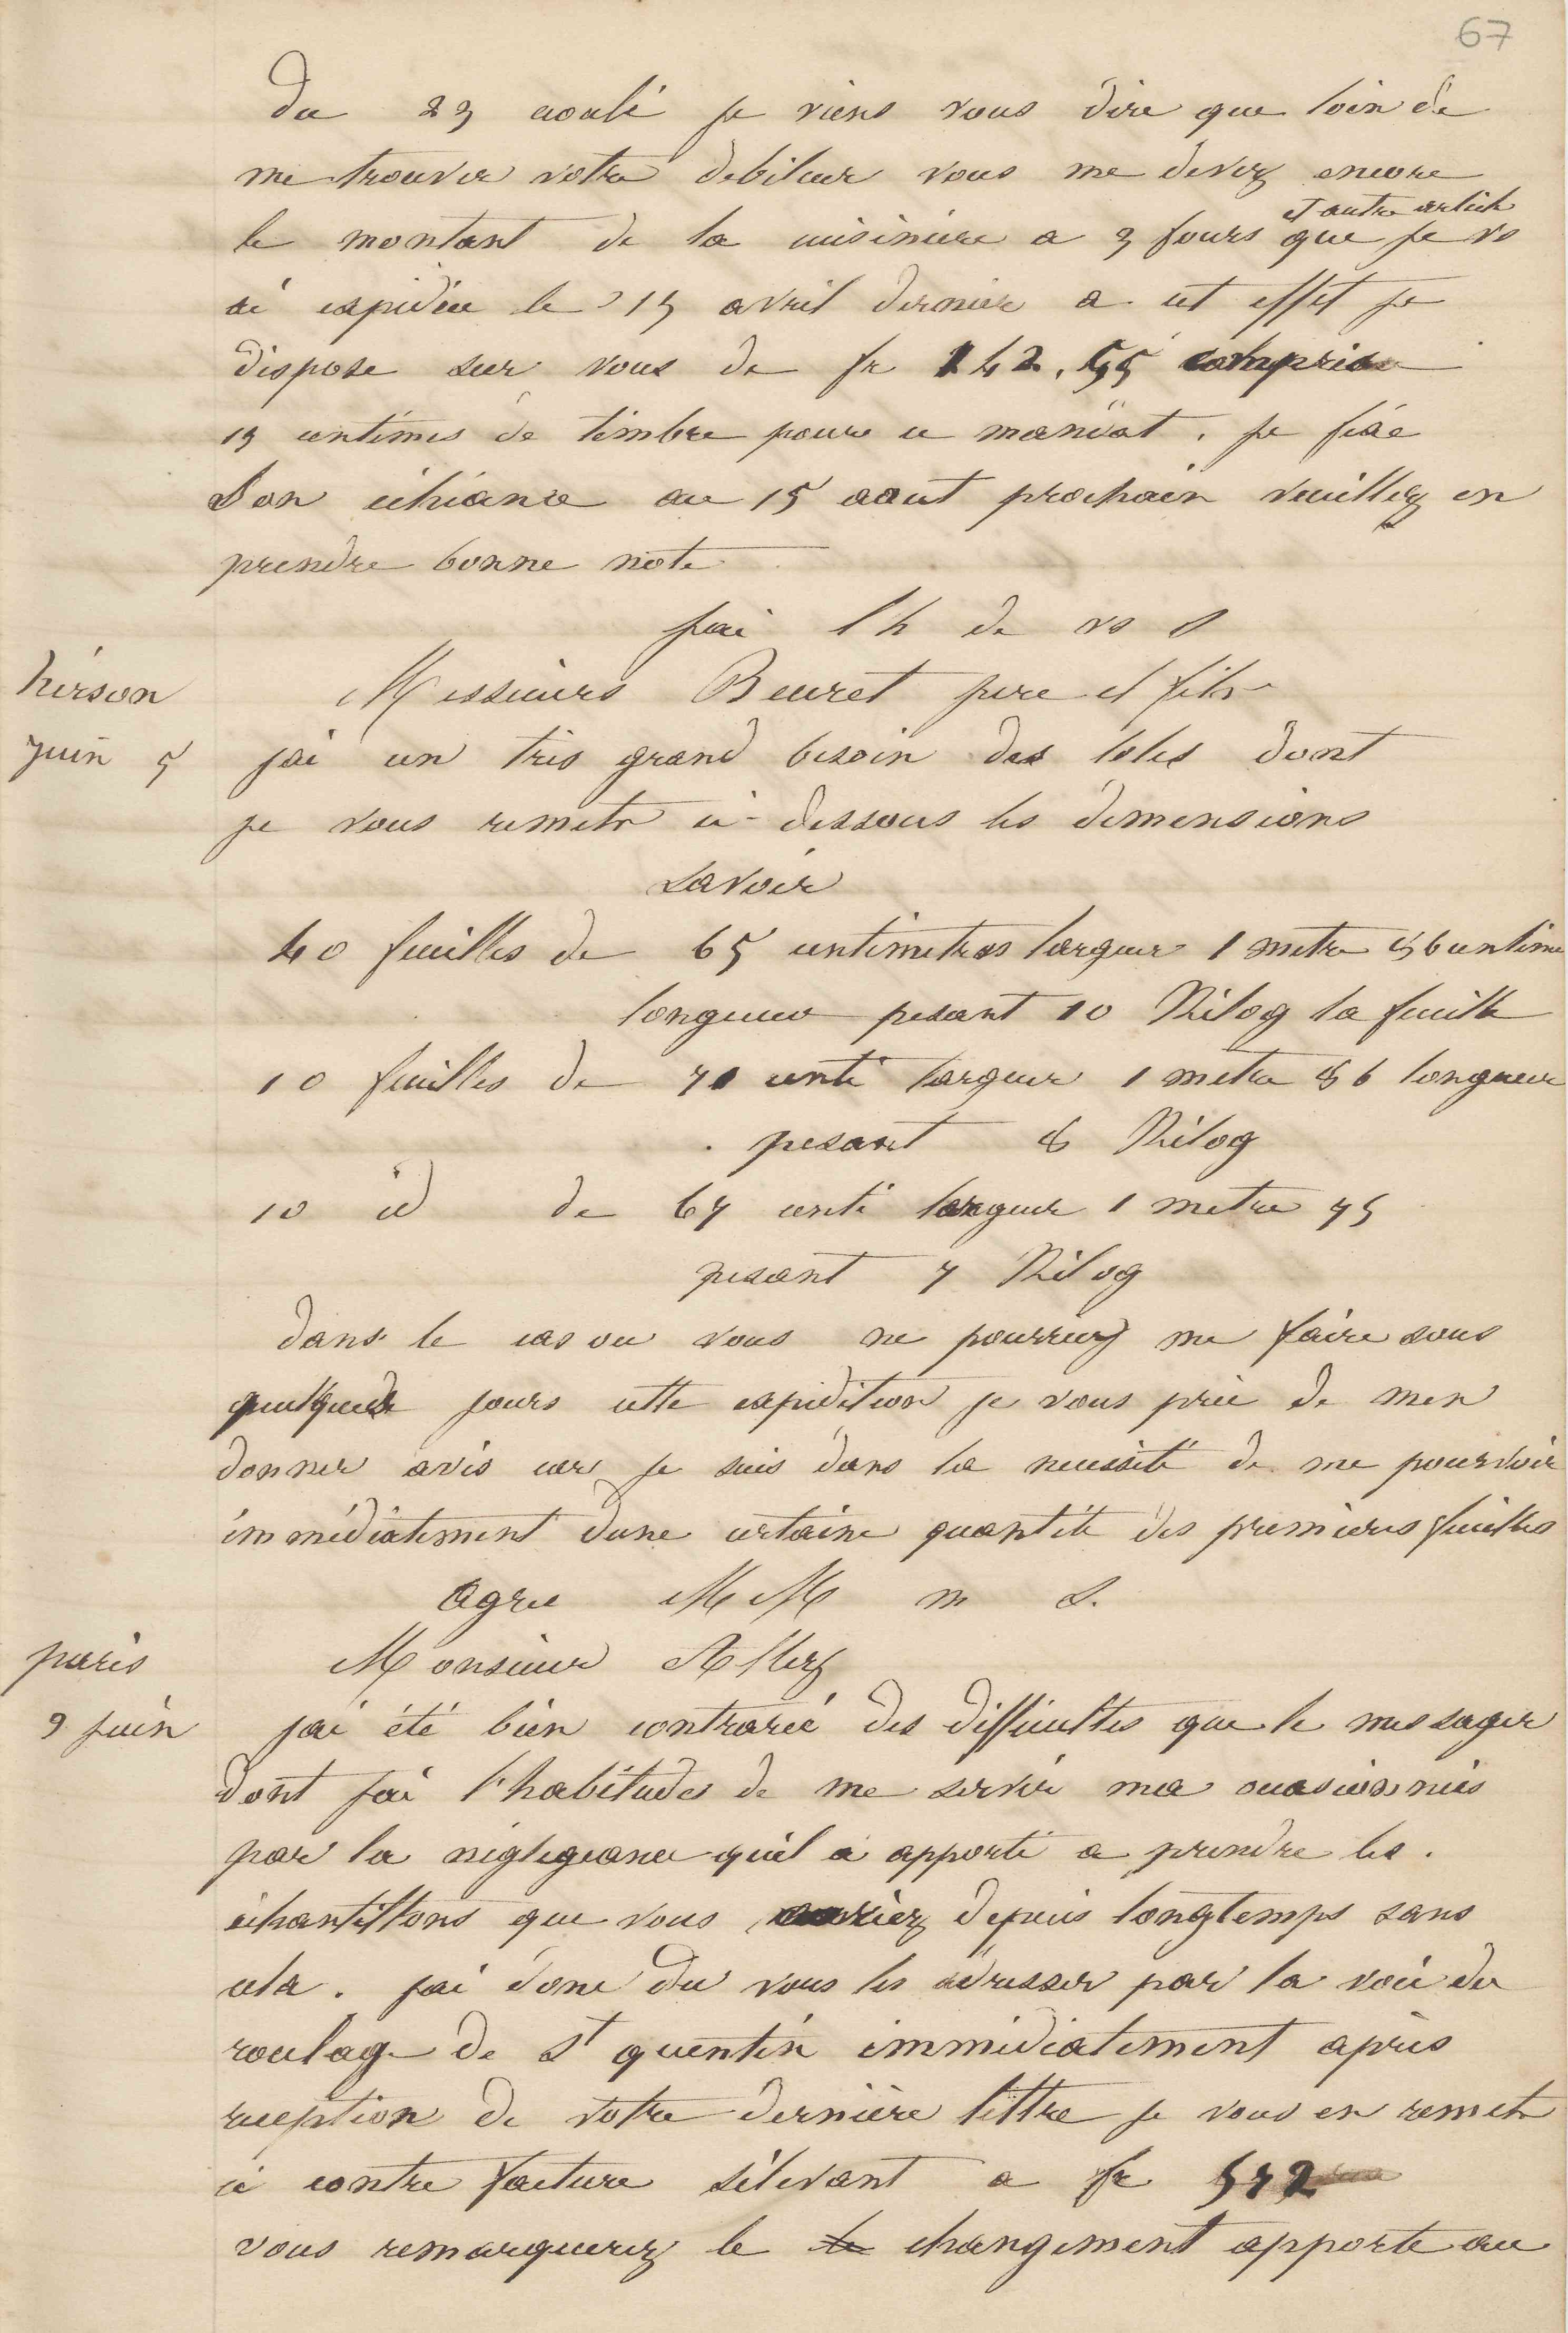 67
du 23 écoulé je viens vous dire que loin de
me trouver votre debiteur vous me devez encore
et autre article
le montant de la cuisiniere a 3 fours que je vs
ai expidiée le 15 avril dernier a cet effet je
dispose sur vous de fr 142.55 compris
15 centimes de timbre pour ce mandat. je fixe
Son echiance au 15 aout prochain veuillez en
prendre bonne note
jai l h de vs s
hirson
Messieurs Beuret pere et fils
juin 5
jai un tris grand besoin des toles dont
je vous remets ci-dessous les dimensions
savoir
40 feuilles de 65 centimetres largeur 1 metre 86 centime
longueur pesant 10 Kilog la feuille
10 feuilles de 71 centi largeur 1 metre 86 longueur
pesant 8 Kilog
10 id de 67 centi largeur 1 metre 75
pesant 7 Kilog
dans le cas ou vous ne pourriez me faire sous
quelques jours cette expidition je vous prie de men
donner avis car je suis dans la necessité de me pourvoir
immédiatement dune certaine quantité des premieres feuilles
agree MM m s.
paris
Monsieur Allez
9 juin
jai été bien contrarié des difficultes que le messager
dont jai l'habitudes de me servir ma occasionnies
par la nigligeance quil a apporté a prendre les.
échantillons que vous auriez depuis longtemps sans
cela. jai donc du vous les adresser par la voie du
roulage de St quentin immidiatement aprés
reception de votre derniére lettre je vous en remets
ci contre facture sélevant a fr 572
vous remarquerez le le changement apporte au